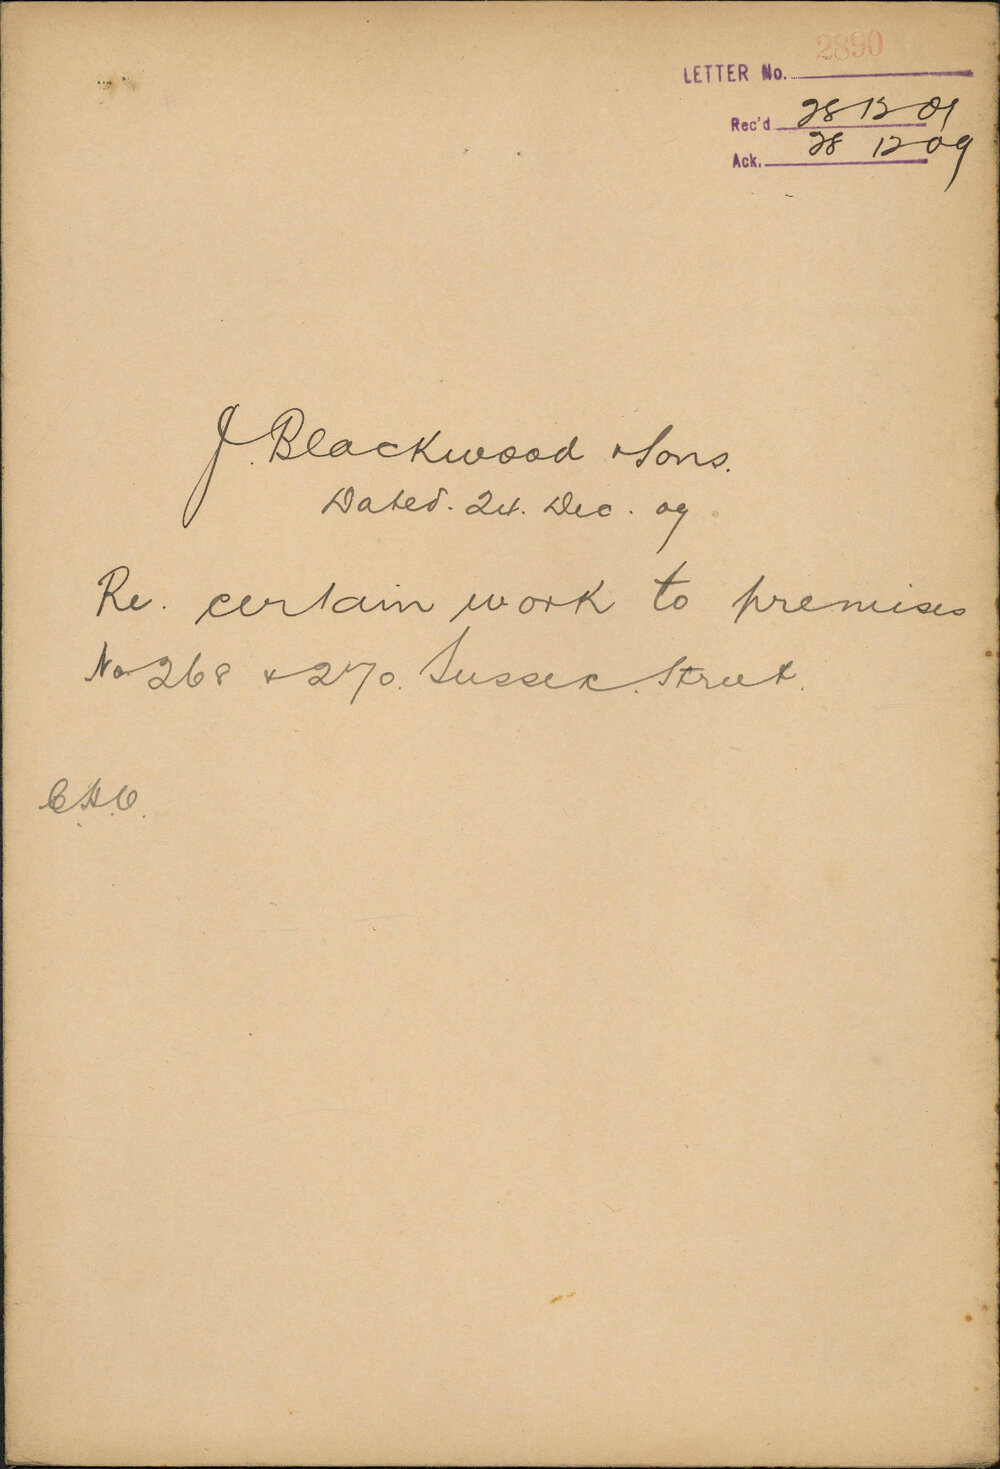 LETTER No. 2890
Rec'd 28 12 09
Ack. 28 12 09
J. Blackwood & Sons.
Dated. 24. Dec. 09
Re. certain work to premises
No 268 & 270. Sussex. Street.
C.H.O.